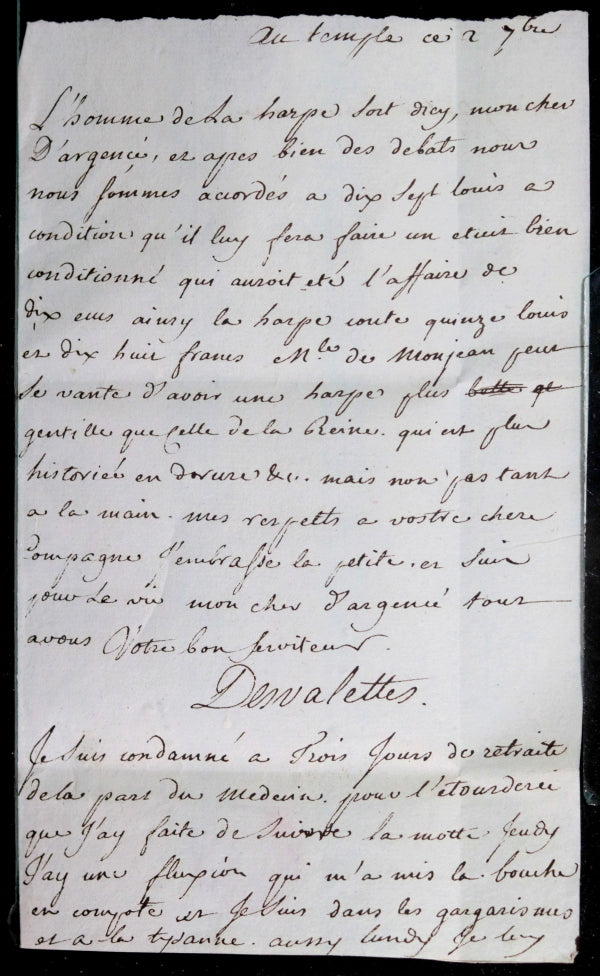 au temple ce 2 7bre
L'homme de La harpe sort dicy, mon cher
D'argencé, et apres bien des debats nous
nous sommes accordés a dix sept louis a
condition qu'il luy fera faire un etuit bien
conditionné qui auroit eté l'affaire de
dix ecus ainsy la harpe coute quinze louis
et dix huit francs Mlle de Monjean peut
se vante d'avoir une harpe plus belle et
gentille que Celle de la Reine. qui est plus
historiée en dorure &c. mais non pas tant
a la main. mes respetts a vostre chere
Compagne J'embrasse la petite. et suis
pour La vie mon cher d'argencé tout
avous Votre bon serviteur.
Desvalettes.
Je suis condamné a Trois Jours de retraite
de la part du Medecin. pour l'etourderei
que J'ay faite de suivre la motte Jeudy
J'ay une fluxion qui m'a mis la bouche
en compote et Je suis dans les gargarismes
et a la tysanne. aussy lundy Je